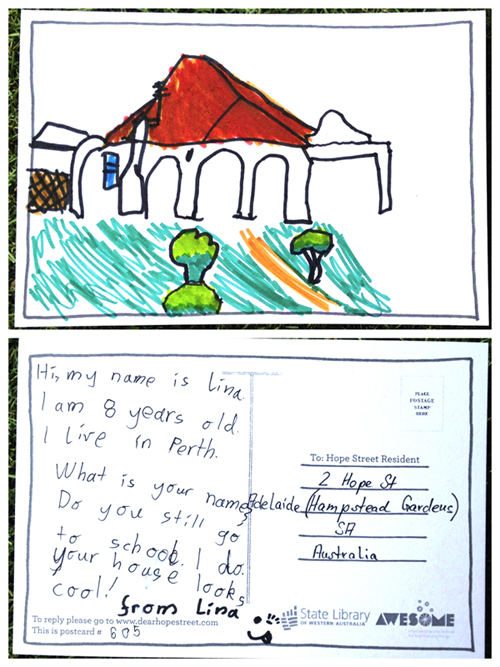 Hi, my name is Lina.
I am 8 years old.
I live in Perth.
What is your name?
Do you still go
to school. I do.
your house looks
cool!
from Lina
To reply please go to www.dearhopestreet.com
This is postcard # 605
PLACE
POSTAGE
STAMP
HERE
To: Hope Street Resident
2 Hope St
Adelaide (Hampstead Gardens)
SA
Australia
State Library
OF WESTERN AUSTRALIA
AWESOME